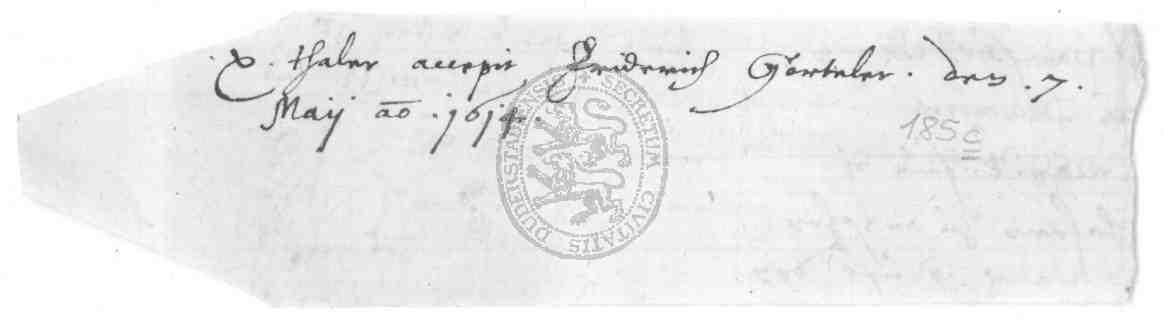 .x. thaler accepit Friderich Görteler . den . 7 .
Maij ao . 1614 .
185c
SECRETUM CIVITATIS DUDERSTADENSIS